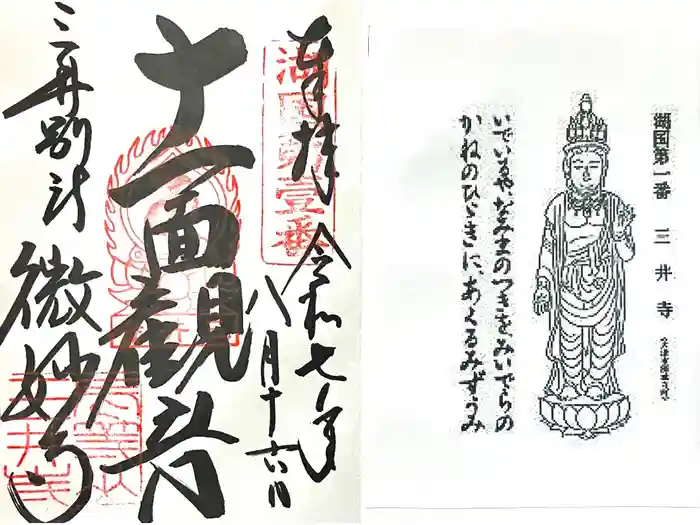 奉拝 令和七年
八月十六日
湖国第壱番
十一面觀音
三井別所
微妙寺
湖国第一番 三井寺 (大津市園城寺町)
いでいるや、なみまのつきをみいでらの
かねのひゞきに、あくるみずうみ